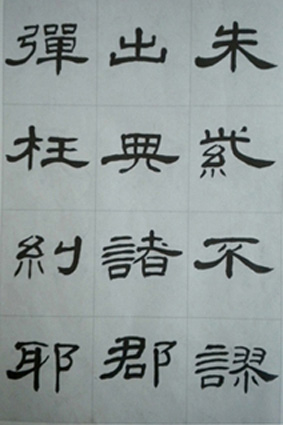 朱紫不謬
出典諸郡
彈枉糾耶